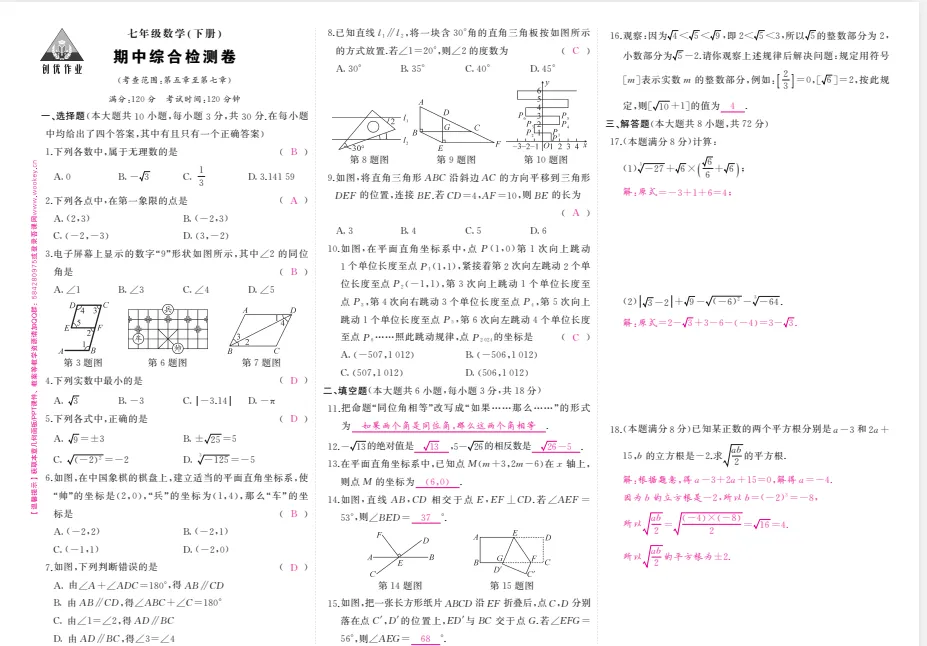 创优作业
七年级数学(下册)
期中综合检测卷
(考查范围:第五章至第七章)
满分:120分 考试时间:120分钟
一、选择题(本大题共10小题,每小题3分,共30分.在每小题
中均给出了四个答案,其中有且只有一个正确答案)
1.下列各数中,属于无理数的是 ( B )
A. 0 B. -√3 C. 1/3 D. 3.141 59
2.下列各点中,在第一象限的点是 ( A )
A. (2,3) B. (-2,3)
C. (-2,-3) D. (3,-2)
3.电子屏幕上显示的数字“9”形状如图所示,其中∠2的同位
角是 ( B )
A. ∠1 B. ∠3 C. ∠4 D. ∠5
D 4 3 C
E 5 2 F
A 1 B
兵
车
帅
A D
1 4
3 2
B C
第3题图 第6题图 第7题图
4.下列实数中最小的是 ( D )
A. √3 B. -3 C. |-3.14| D. -π
5.下列各式中,正确的是 ( D )
A. √9=±3 B. ±√25=5
C. √(-2)²=-2 D. ³√-125=-5
6.如图,在中国象棋的棋盘上,建立适当的平面直角坐标系,使
“帅”的坐标是(2,0),“兵”的坐标为(1,4),那么“车”的坐
标是 ( B )
A. (-2,2) B. (-2,1)
C. (-1,1) D. (-2,0)
7.如图,下列判断错误的是 ( D )
A. 由∠A+∠ADC=180°,得AB∥CD
B. 由AB∥CD,得∠ABC+∠C=180°
C. 由∠1=∠2,得AD∥BC
D. 由AD∥BC,得∠3=∠4
8.已知直线l₁∥l₂,将一块含30°角的直角三角板按如图所示
的方式放置.若∠1=20°,则∠2的度数为 ( C )
A. 30° B. 35° C. 40° D. 45°
2 l₁
1 l₂
30°
A D
B G C
E F
y
6
5
4
3
2
1
-3-2-1 O 1 2 3 4 x
第8题图 第9题图 第10题图
9.如图,将直角三角形ABC沿斜边AC的方向平移到三角形
DEF的位置,连接BE.若CD=4,AF=10,则BE的长为
( A )
A. 3 B. 4 C. 5 D. 6
10.如图,在平面直角坐标系中,点P(1,0)第1次向上跳动
1个单位长度至点P₁(1,1),紧接着第2次向左跳动2个单
位长度至点P₂(-1,1),第3次向上跳动1个单位长度至
点P₃,第4次向右跳动3个单位长度至点P₄,第5次向上
跳动1个单位长度至点P₅,第6次向左跳动4个单位长度
至点P₆……照此跳动规律,点P₂₀₂₃的坐标是 ( C )
A. (-507,1 012) B. (-506,1 012)
C. (507,1 012) D. (506,1 012)
二、填空题(本大题共6小题,每小题3分,共18分)
11.把命题“同位角相等”改写成“如果……那么……”的形式
为 如果两个角是同位角,那么这两个角相等 .
12.-√15的绝对值是 √15 ,5-√26的相反数是 √26-5 .
13.在平面直角坐标系中,已知点M(m+3,2m-6)在x轴上,
则点M的坐标为 (6,0) .
14.如图,直线AB,CD相交于点E,EF⊥CD.若∠AEF=
53°,则∠BED= 37 °.
F D
A E B
C
A E D
B G F C
D′ C′
第14题图 第15题图
15.如图,把一张长方形纸片ABCD沿EF折叠后,点C,D分别
落在点C′,D′的位置上,ED′与BC交于点G.若∠EFG=
56°,则∠AEG= 68 °.
16.观察:因为√4<√5<√9,即2<√5<3,所以√5的整数部分为2,
小数部分为√5-2.请你观察上述规律后解决问题:规定用符号
[m]表示实数m的整数部分,例如:[2/3]=0,[√6]=2,按此规
定,则[√10+1]的值为 4 .
三、解答题(本大题共8小题,共72分)
17.(本题满分8分)计算:
(1)³√-27+√6×(√6/6+√6);
解:原式=-3+1+6=4;
(2)|√3-2|+√9-√(-6)²-³√-64.
解:原式=2-√3+3-6-(-4)=3-√3.
18.(本题满分8分)已知某正数的两个平方根分别是a-3和2a+
15,b的立方根是-2.求√ab/2的平方根.
解:根据题意,得a-3+2a+15=0,解得a=-4.
因为b的立方根是-2,所以b=(-2)³=-8,
所以√ab/2=√(-4)×(-8)/2=√16=4.
所以√ab/2的平方根为±2.